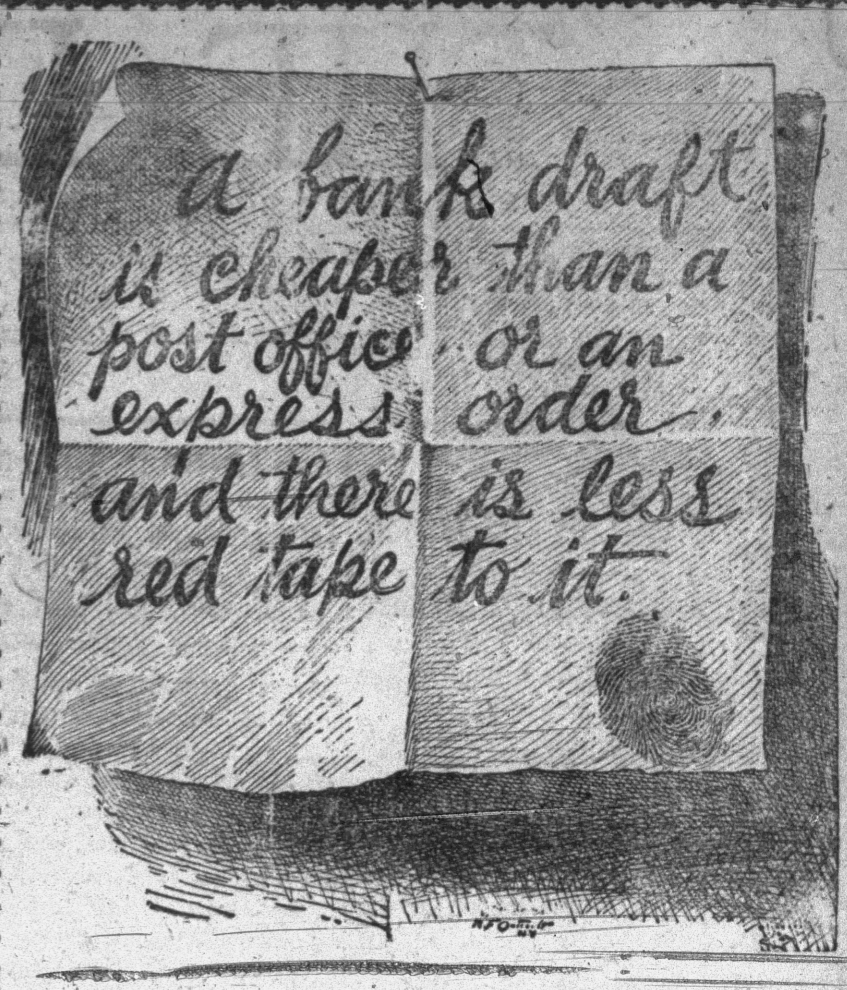 a bank draft
is cheaper than a
post office or an
express order
and there is less
red tape to it.